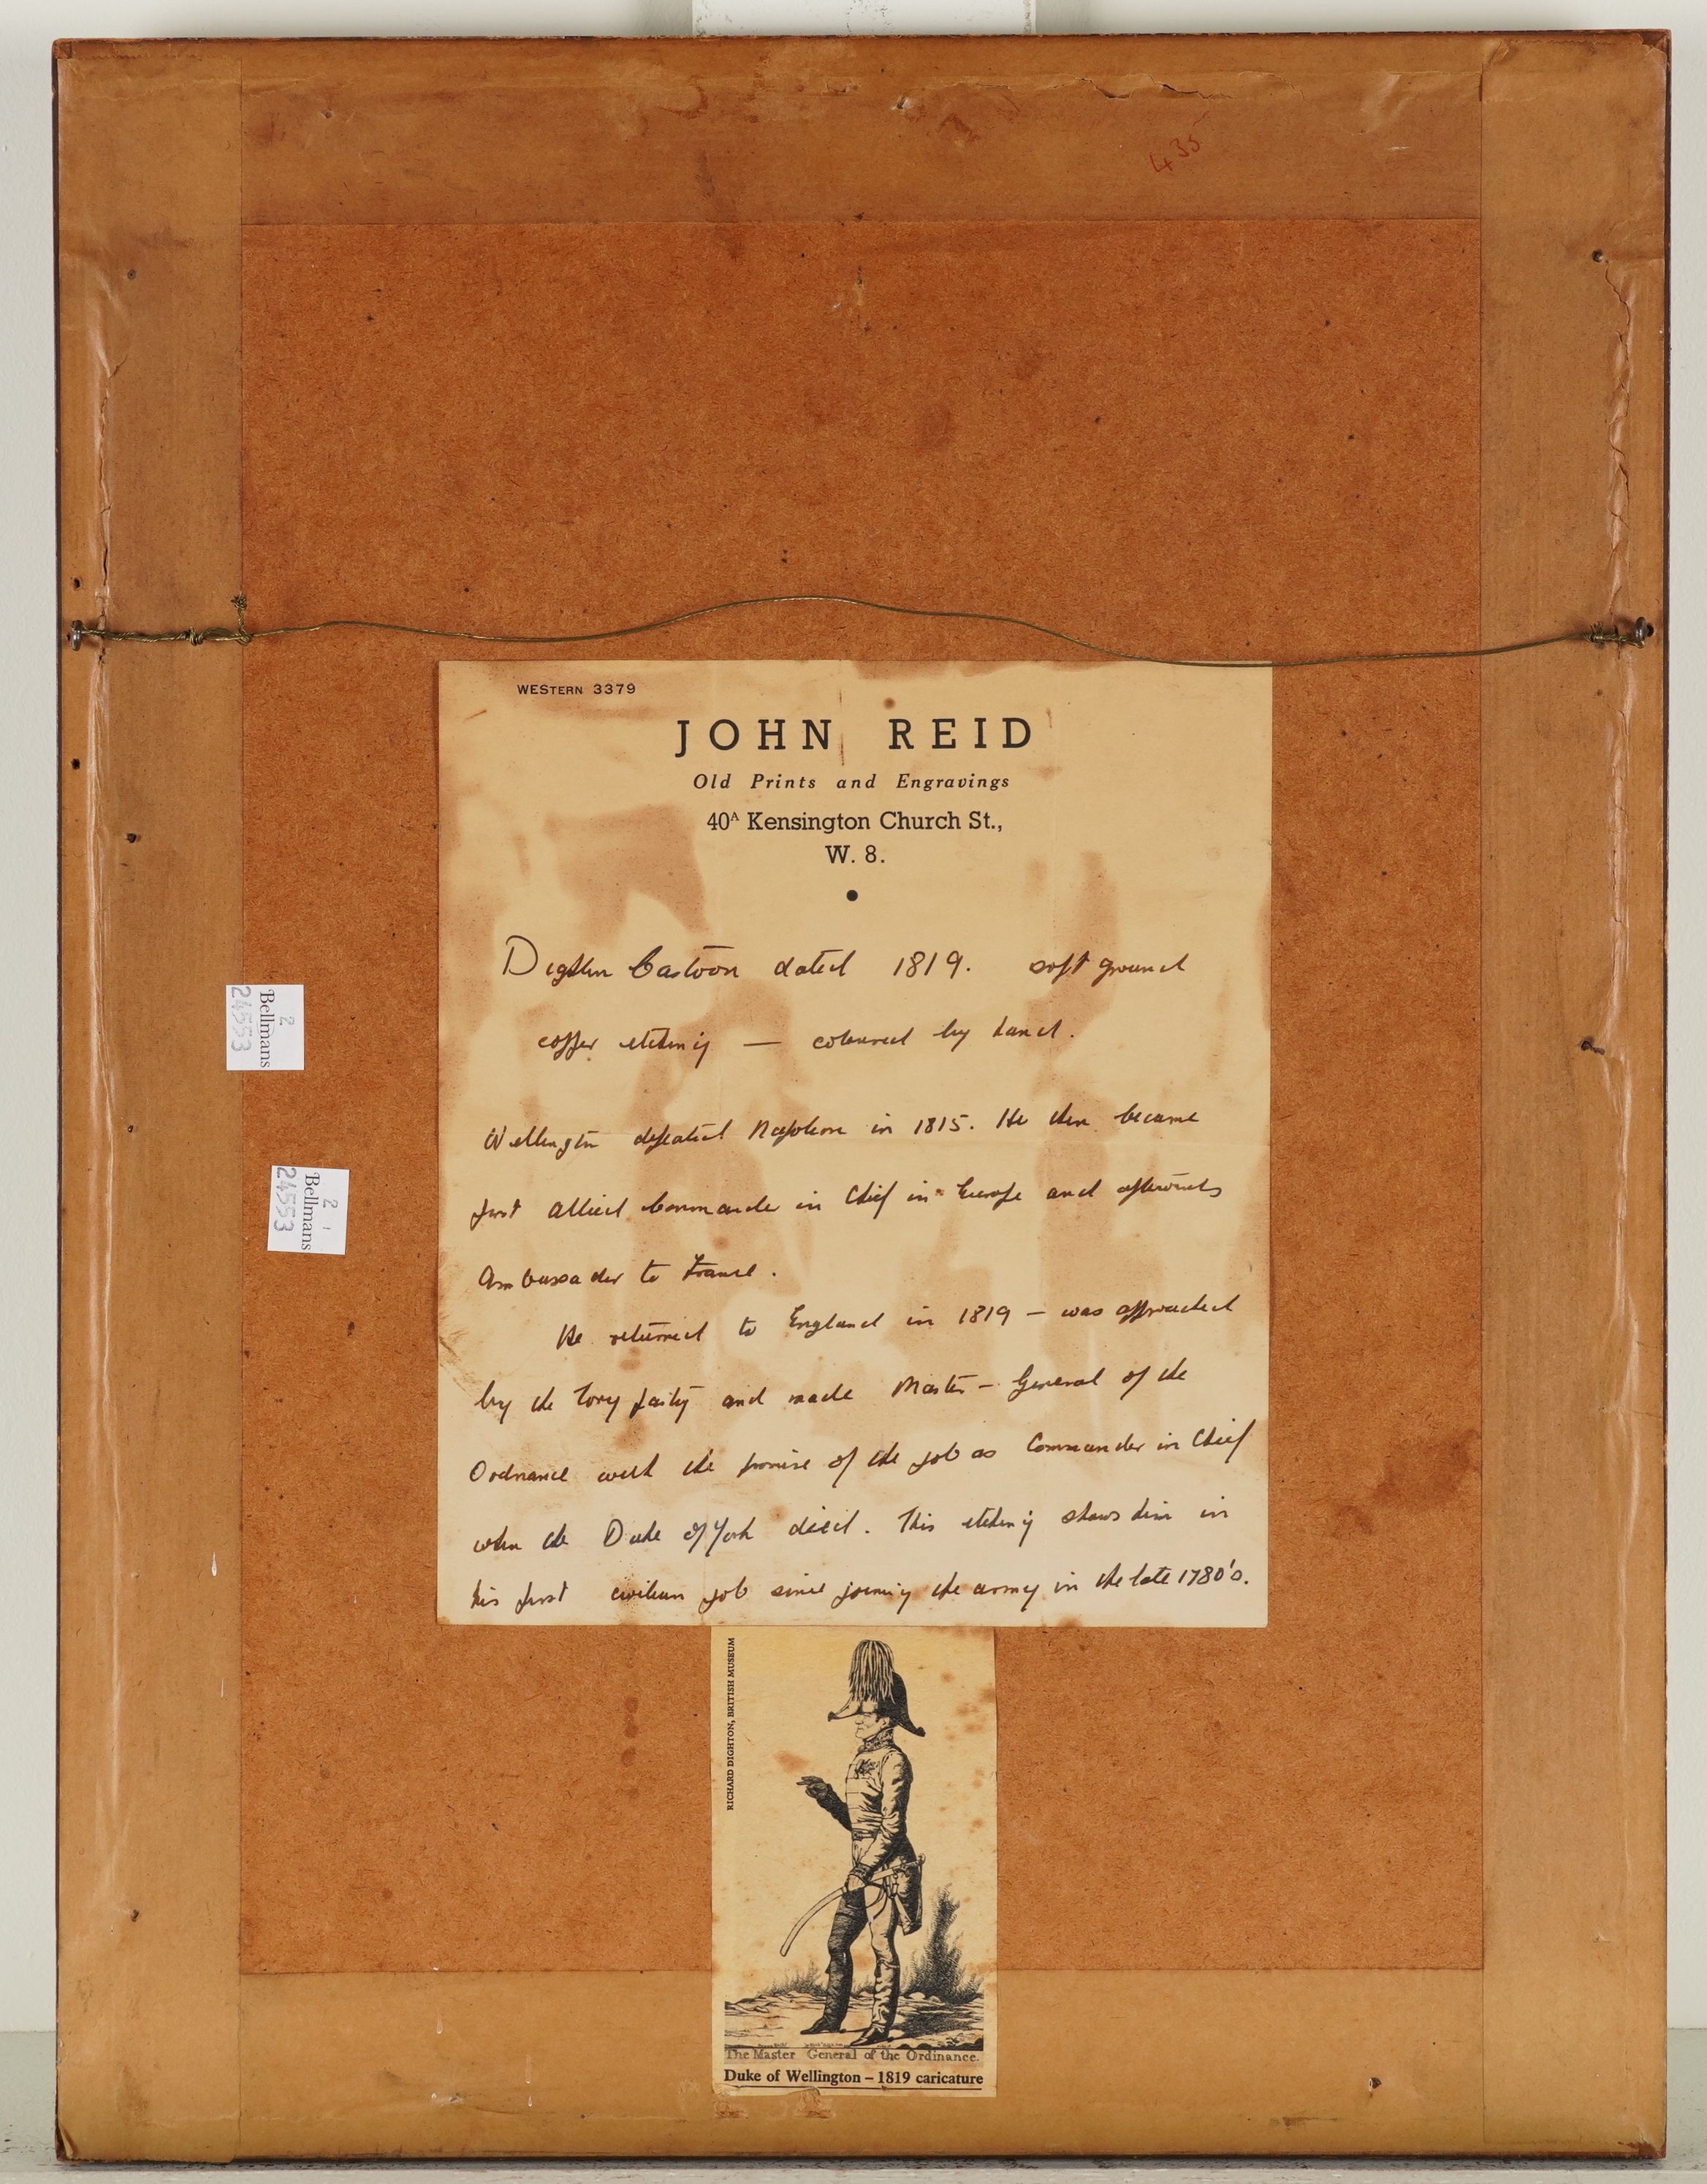 435
WESTERN 3379
JOHN REID
Old Prints and Engravings
40A Kensington Church St.,
W. 8.
Dighton Cartoon dated 1819. soft ground
copper etching — coloured by hand.
Wellington defeated Napoleon in 1815. He then became
first allied Commander in Chief in Europe and afterwards
Ambassador to France.
He returned to England in 1819 – was approached
by the Tory party and made Master – General of the
Ordnance with the promise of the job as Commander in Chief
when the Duke of York died. This etching shows him in
his first civilian job since joining the army in the late 1780's.
2
Bellmans
24553
2 1
Bellmans
24553
RICHARD DIGHTON, BRITISH MUSEUM
The Master General of the Ordinance.
Duke of Wellington – 1819 caricature